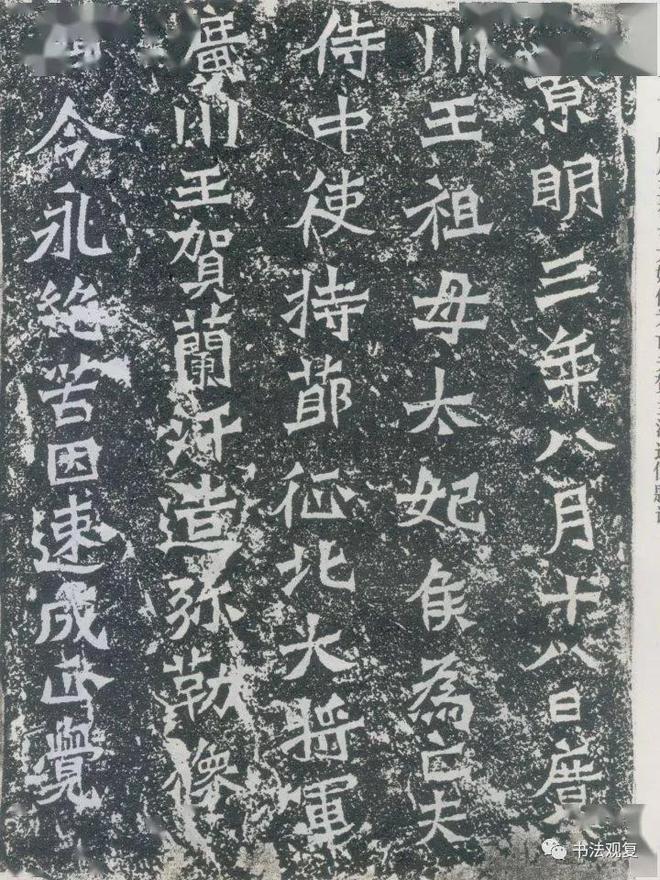 景明三年八月十八日廣
川王祖母太妃侯為亡夫
侍中使持節征北大將軍
廣川王賀蘭汗造弥勒像
令永絕苦因速成正覺
书法观复